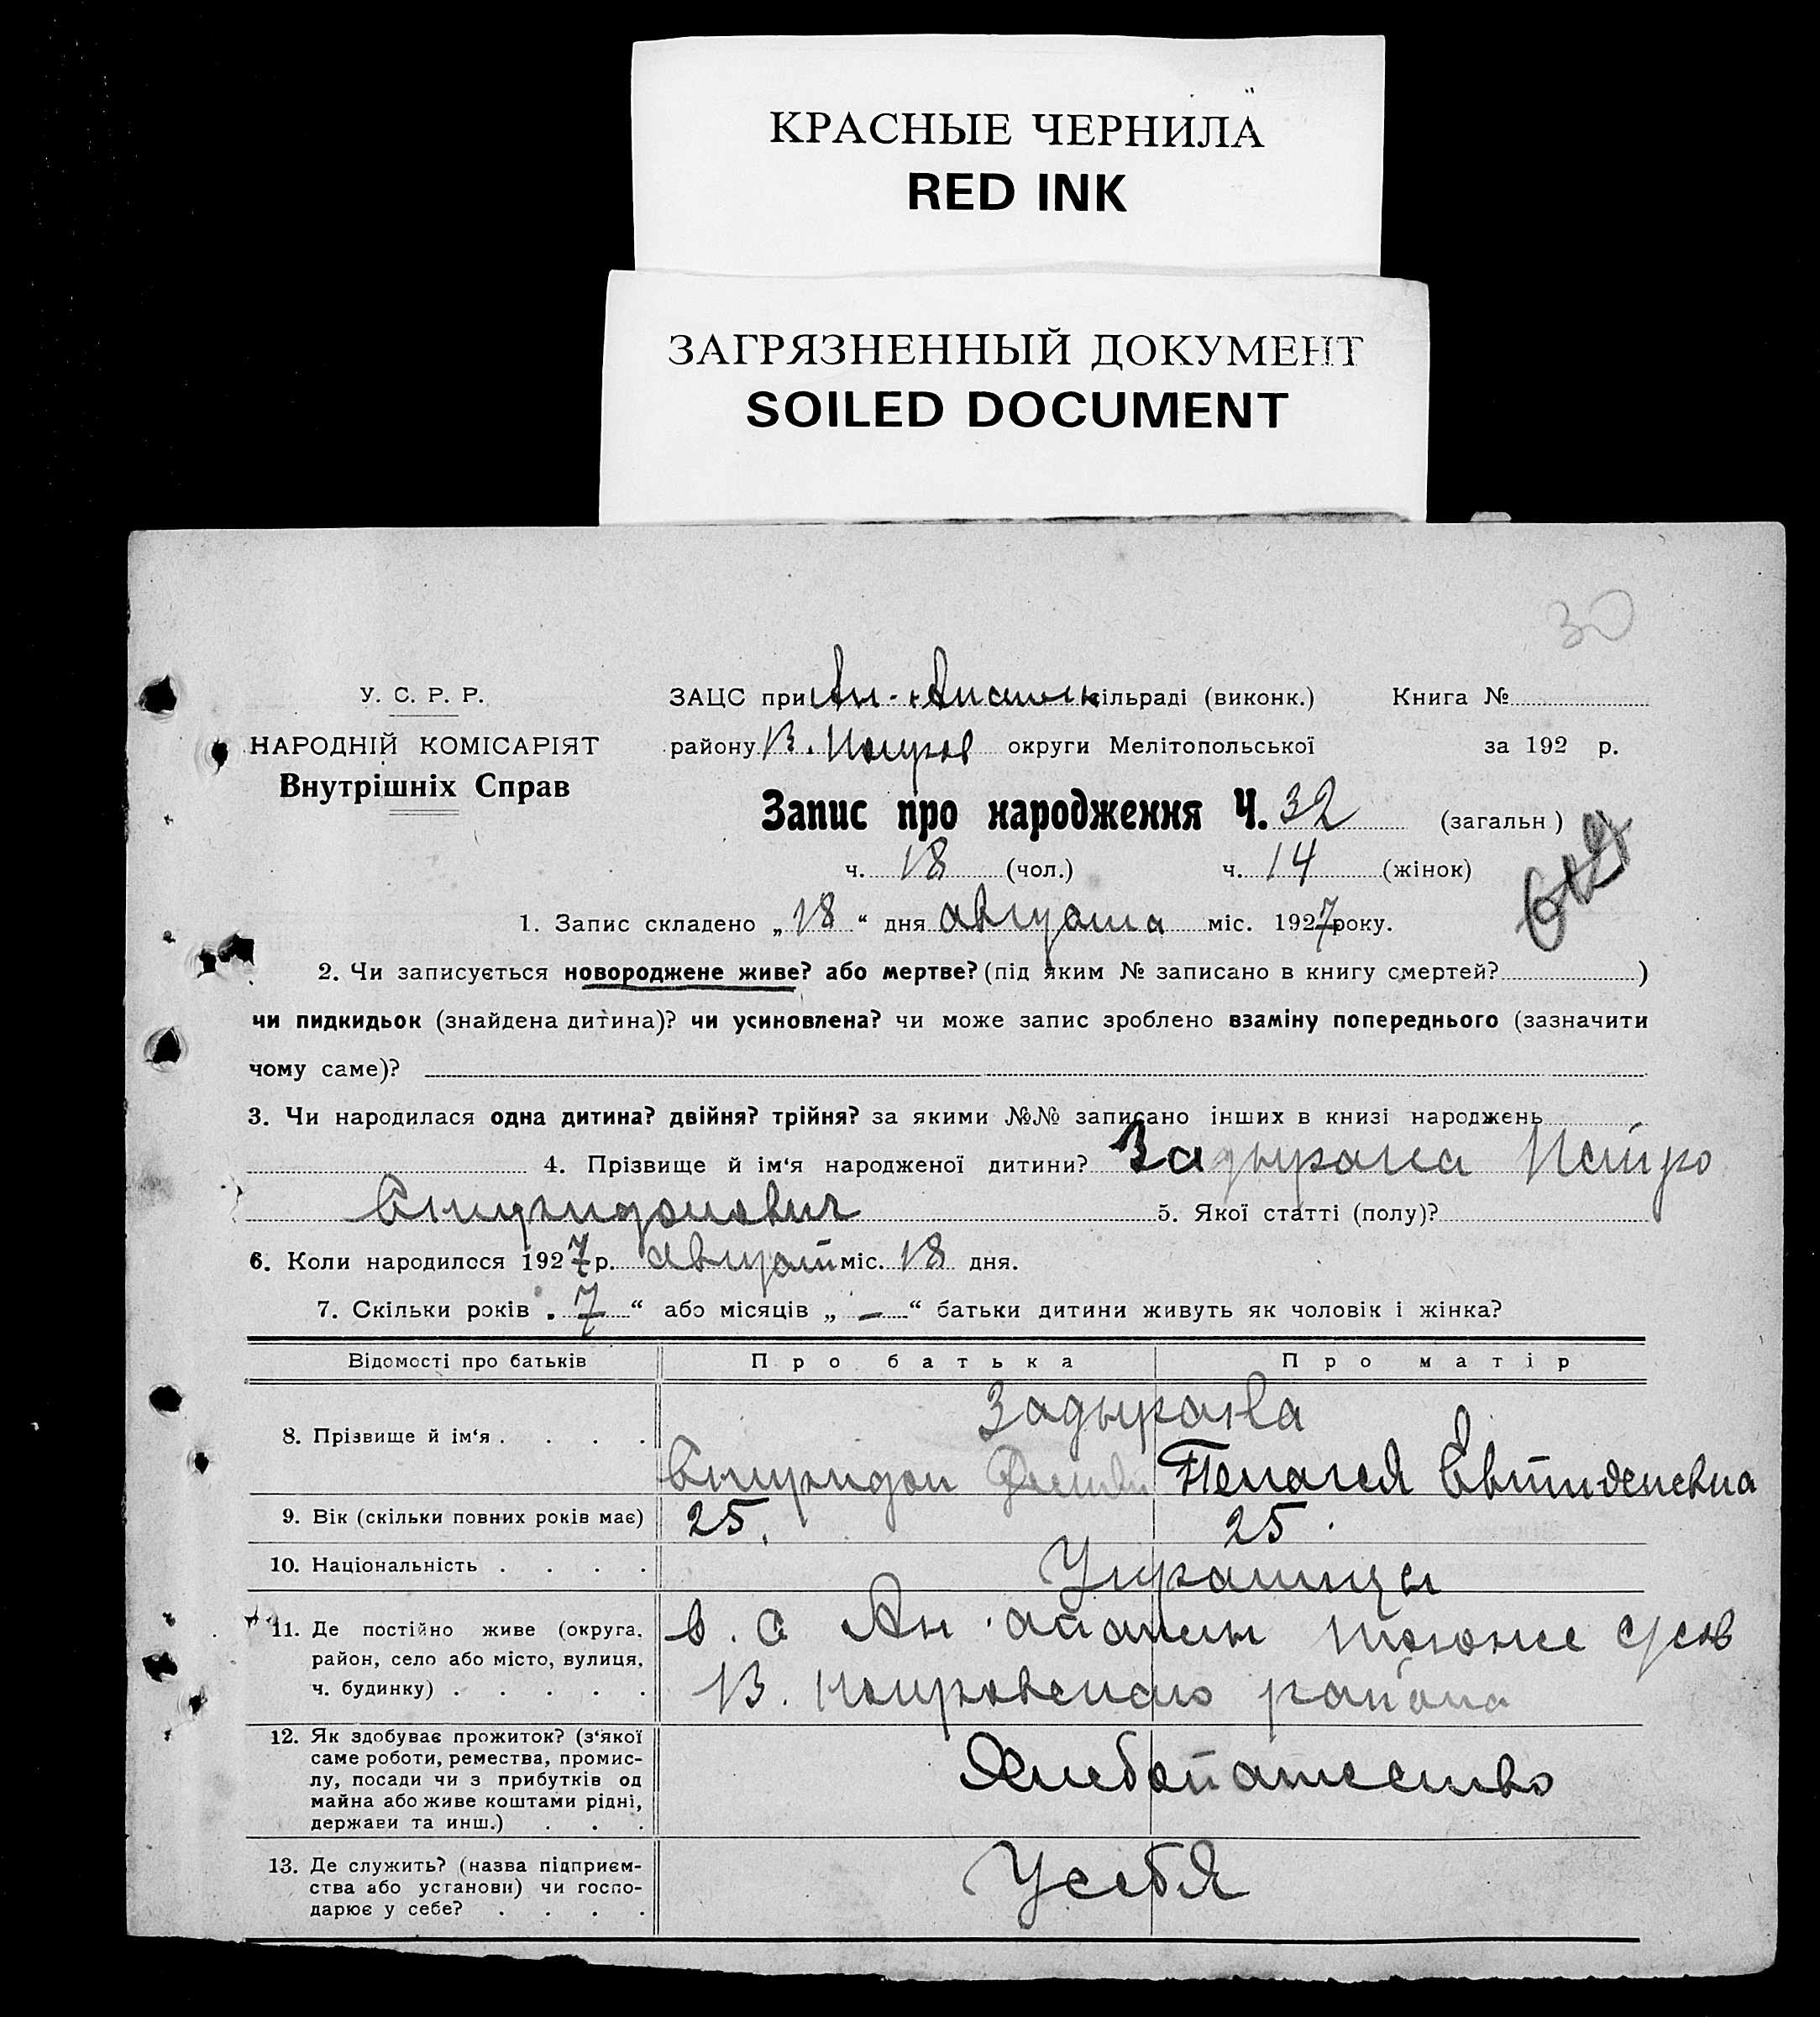 КРАСНЫЕ ЧЕРНИЛА
RED INK
ЗАГРЯЗНЕННЫЙ ДОКУМЕНТ
SOILED DOCUMENT
30
У. С. Р. Р.
НАРОДНІЙ КОМІСАРІЯТ
Внутрішніх Справ
ЗАЦС при Ан- сільраді (виконк.) Книга №
району В. Покров округи Мелітопольської за 192 р.
Запис про народження Ч. 32 (загальн)
ч. 18 (чол.) ч. 14 (жінок)
1. Запис складено „18“ дня августа міс. 1927 року.
2. Чи записується новороджене живе? або мертве? (під яким № записано в книгу смертей? )
чи пидкидьок (знайдена дитина)? чи усиновлена? чи може запис зроблено взаміну попереднього (зазначити
чому саме)?
3. Чи народилася одна дитина? двійня? трійня? за якими №№ записано інших в книзі народжень
4. Прізвище й ім‘я народженої дитини? Задырака Петро
Спиридонович 5. Якої статті (полу)?
6. Коли народилося 1927 р. август міс. 18 дня.
7. Скільки років „7“ або місяців „—“ батьки дитини живуть як чоловік і жінка?
Відомості про батьків Про батька Про матір
Задырака
8. Прізвище й ім‘я . . . .
Спиридон Пелагея
9. Вік (скільки повних років має) 25. 25.
10. Національність . . . . Украинцы
11. Де постійно живе (округа, район, село або місто, вулиця, ч. будинку) . . . . .
в. с Ан
В. Покровского района
12. Як здобуває прожиток? (з‘якої
саме роботи, ремества, промис-
лу, посади чи з прибутків од
майна або живе коштами рідні,
держави та инш.) . . .
Хлебопашество
13. Де служить? (назва підприєм-
ства або установи) чи госпо-
дарює у себе? . . . .
У себя